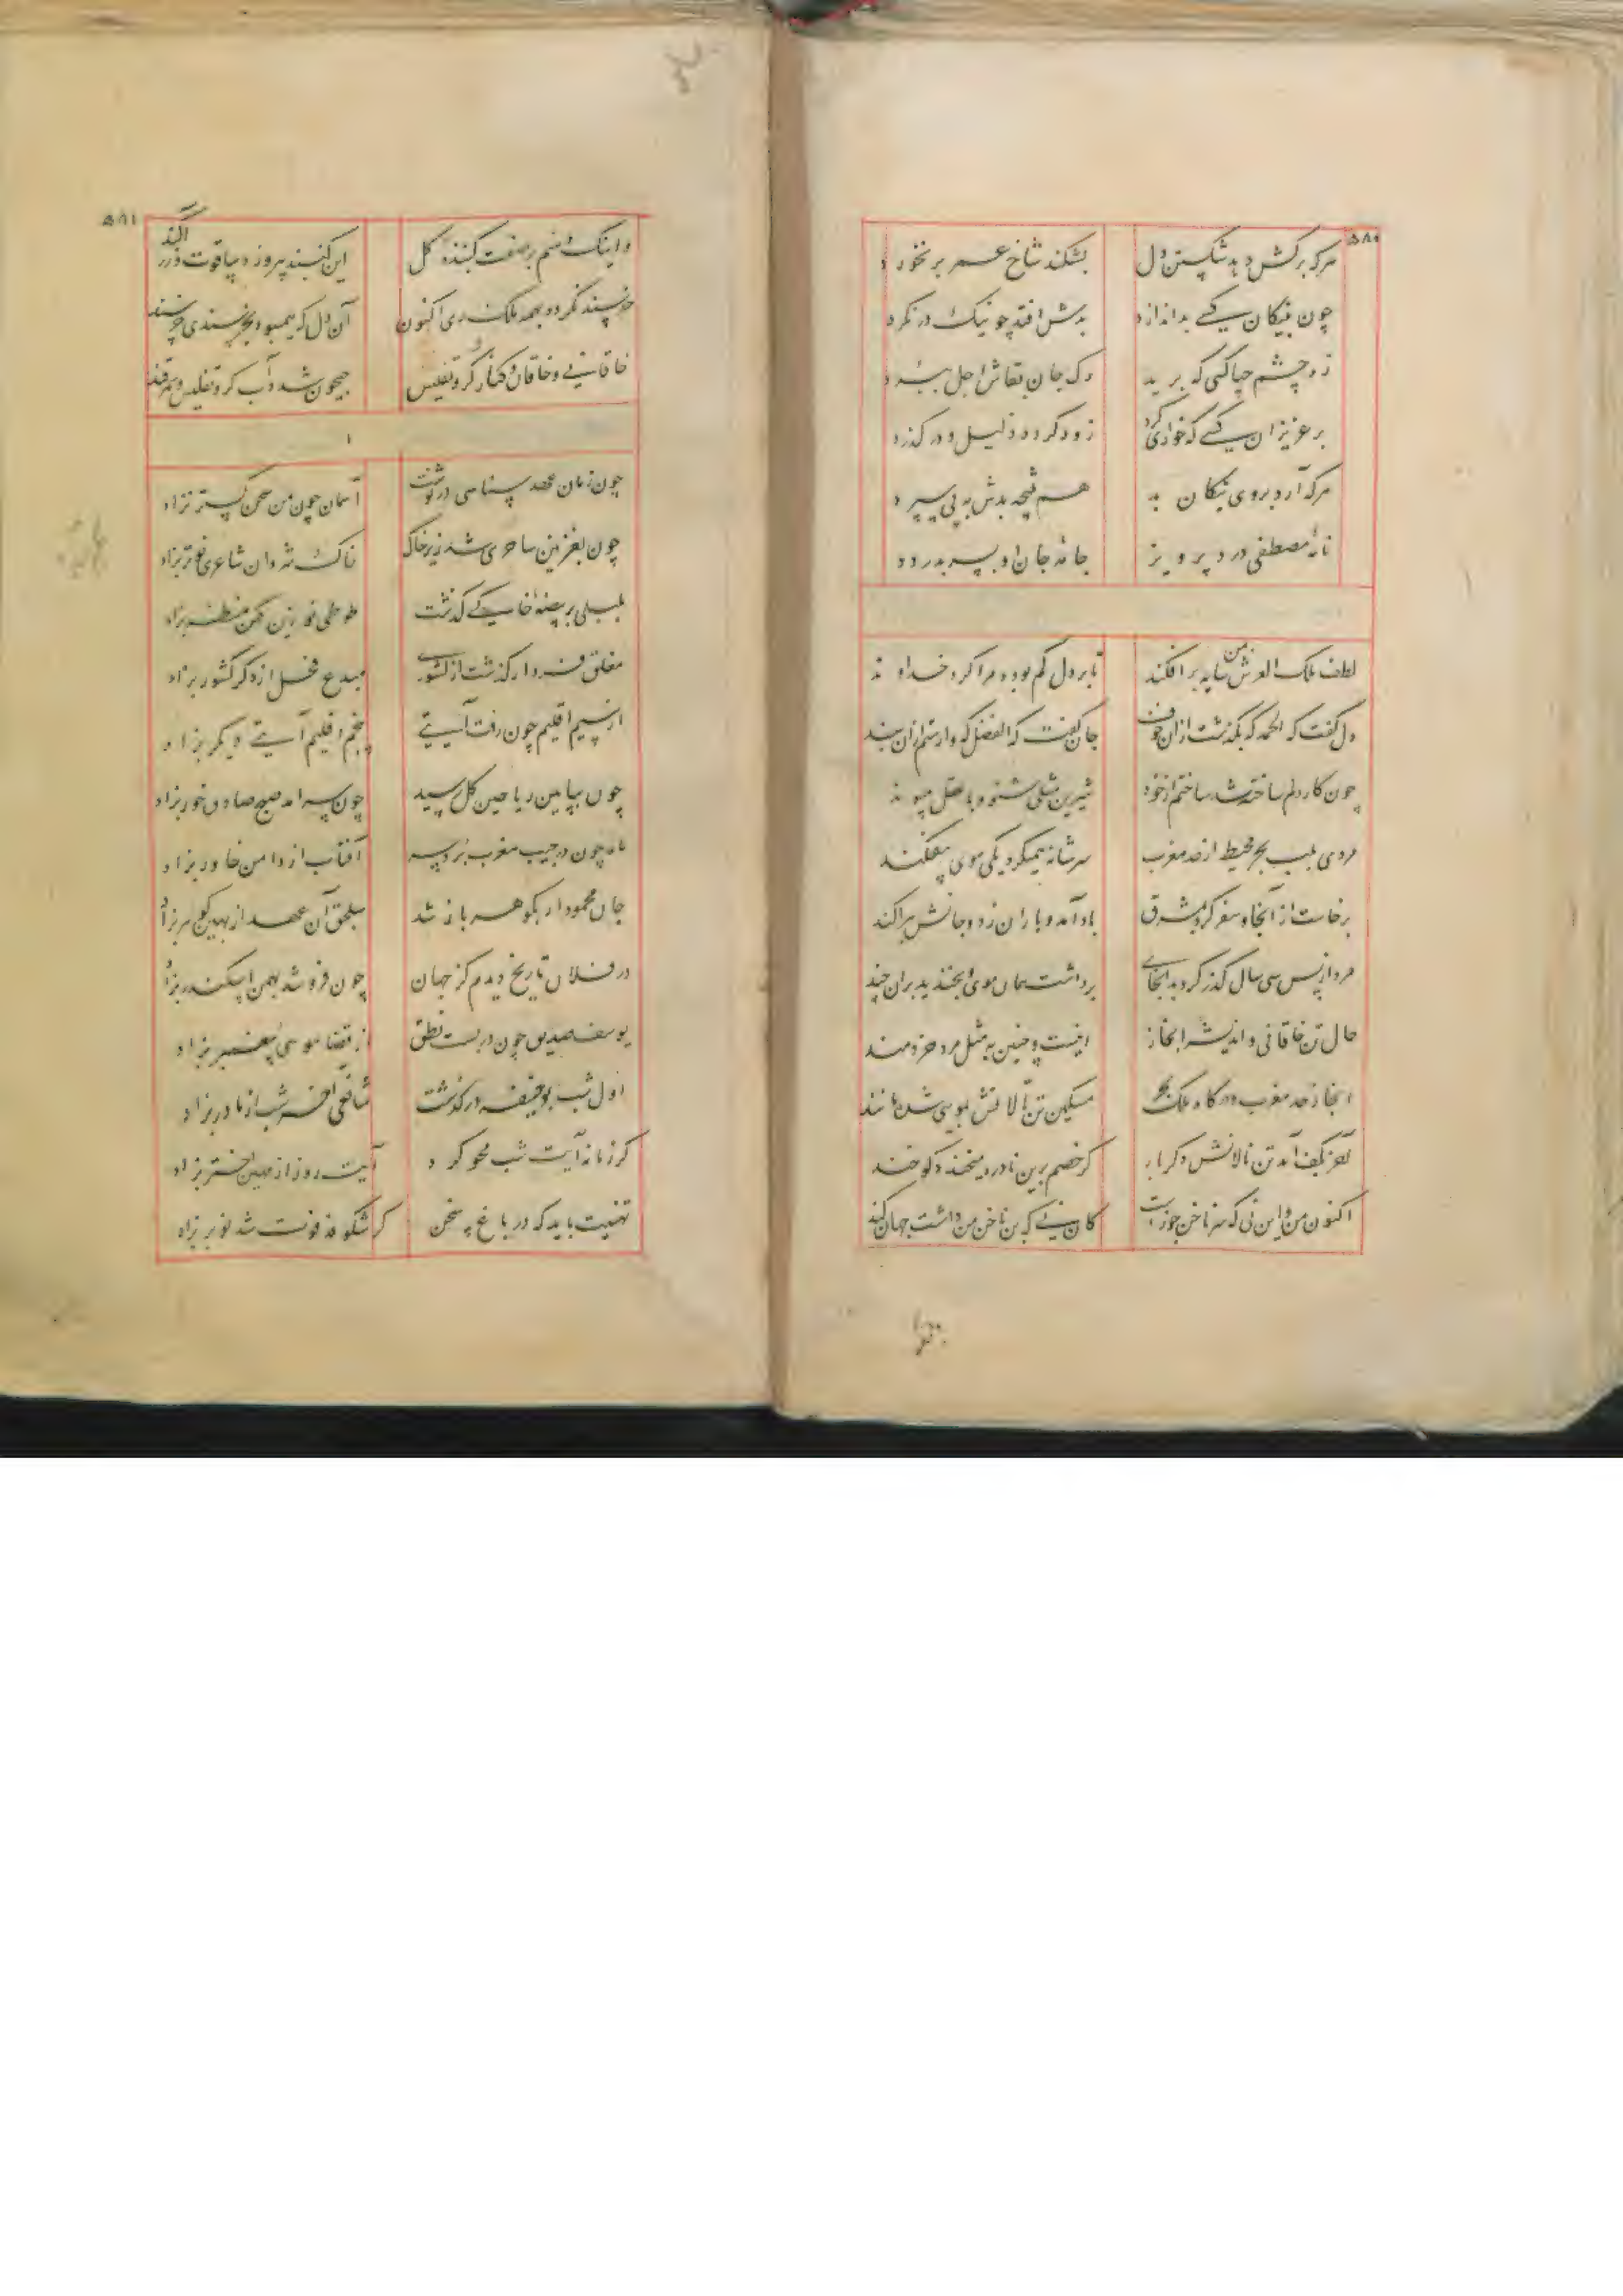 ۵۸۰
هرکه برکش دهد شکستن دل بشکند شاخ عمر بر نخورد
چون بنیکان کسی بد اندازد بدش افتد چو نیک درنگرد
زه چشم حیا کسی که برید رگ جان بقاش اجل ببرد
بر عزیزان کسی که خواری کرد زود گردد ذلیل و درگذرد
هرکه آرد بروی نیکان بد هم نتیجه بدش به پی سپرد
نامهٔ مصطفی درد پرویز جامهٔ جان او پسر بدرد
لطف ملک العرش بمن سایه برافکند تا بر دل گم بوده مرا کرد خداوند
دل گفت که الحمد که بگذشت از آن خوف جان گفت که الفضل که وارستم ازان بند
چون کار دلم ساخته شد ساختم از خود شیرین مثلی بشنو و با عقل بپیوند
مردی بلب بحر محیط از حد مغرب سر شانه همیکرد و یکی موی بیفکند
برخاست از آنجا و سفر کرد بمشرق باد آمد و باران زد و جانش بپراکند
مرد از پس سی سال گذر کرد بدانجای برداشت همان موی و بخندید بران چند
حال تن خاقانی و اندیشهٔ ابخاز اینست و چنین به مثل مرد خردمند
ابخاز حد مغرب و درگاه ملک بحر مسکین تن نالانش بمویی شده مانند
آخر بکف آمد تن نالانش دگر بار گر خصم برین نادره میخندد گو خند
اکنون من و این نی که سر ناخن حور است کان نی که بن ناخن من داشت جهان کند
۵۸۱
و اینک منم بر صفت گنبدهٔ گل این گنبد پیروزه بیاقوت و زر آکند
خرسند نگردد بهمه ملک ری اکنون آن دل که همیبود بخرسندی خرسند
خاقانی و خاقان و کنار کر و تفلیس جیحون شده آب کر و تفلیس سمرقند
چون زمان عهد سنایی درنوشت آسمان چون من سخن گستر بزاد
چون بغزنین ساحری شد زیر خاک خاک شروان شاعری نوتر بزاد
بلبلی بر بیضهٔ خاکی گذشت طوطی نو زین کهن منظر بزاد
مفلق فرد ار گذشت از کشوری مبدع فحل از دگر کشور بزاد
از سیم اقلیم چون رفت آیتی پنجم اقلیم آیتی دیگر بزاد
چون بپایین ریاحین گل رسید چون سر آمد صبح صادق خور بزاد
ماه چون در جیب مغرب برد سر آفتاب از دامن خاور بزاد
جان محمود ار بگوهر باز شد سلجق آن عهد از بهین گوهر بزاد
در فلان تاریخ دیدم کز جهان چون فرو شد بهمن اسکندر بزاد
یوسف صدیق چون بربست نطق از قضا موسی پیغمبر بزاد
اول شب بوحنیفه درگذشت شافعی آخر شب از مادر بزاد
گر زمانه آیت شب محو کرد آیت روز از مهین اختر بزاد
تهنیت باید که در باغ سخن گر شکوفه فوت شد نوبر بزاد